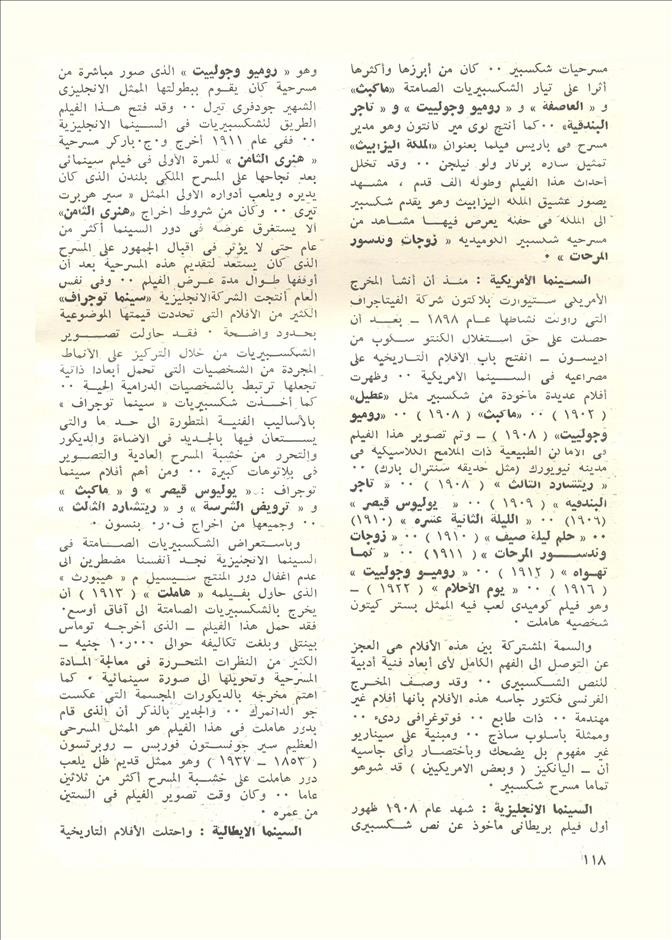 مسرحيات شكسبير ٠٠ كان من أبرزها وأكثرها
أثرا على تيار الشكسبيريات الصامتة «ماكبث»
و « العاصفة » و « روميو وجولييت » و « تاجر
البندقية» ٠٠كما أنتج لوى مير نانتون وهو مدير
مسرح فى باريس فيلما بعنوان «الملكة اليزابيث»
تمثيل ساره برنار ولو نيلجن ٠٠ وقد تخلل
أحداث هذا الفيلم وطوله الف قدم ، مشهد
يصور عشيق الملكه اليزابيث وهو يقدم شكسبير
الى الملكه فى حفله يعرض فيها مشاهد من
مسرحيه شكسبير الكوميديه « زوجات وندسور
المرحات » ٠
السينما الأمريكية : منذ أن أنشأ المخرج
الأمريكى ستيوارت بلاكتون شركة الفيتاجراف
التى زاولت نشاطها عام ١٨٩٨ ــ بعد أن
حصلت على حق استغلال الكنتو سكوب من
اديسون ــ انفتح باب الأفلام التاريخيه على
مصراعيه فى السينما الأمريكية ٠٠ وظهرت
أفلام عديدة مأخوذة من شكسبير مثل «عطيل»
( ١٩٠٢ ) ٠٠ «ماكبث» ( ١٩٠٨ ) ٠٠ «روميو
وجولييت» ( ١٩٠٨ ) ــ وتم تصوير هذا الفيلم
فى الأماكن الطبيعية ذات الملامح الكلاسيكية فى
مدينه نيويورك (مثل حديقه سنترال بارك) ٠٠
« ريتشارد الثالث » ( ١٩٠٨ ) ٠٠ « تاجر
البندقيه » ( ١٩٠٩ ) ٠٠ « يوليوس قيصر »
(١٩٠٦) ٠٠ « الليلة الثانية عشره » (١٩١٠)
٠٠ « حلم ليلة صيف » ( ١٩١٠ ) ٠٠ « زوجات
وندسور المرحات » ( ١٩١١ ) ٠٠ « كما
تهواه » ( ١٩١٢ ) ٠٠ « روميو وجولييت »
( ١٩١٦ ) ٠٠ « يوم الأحلام » ( ١٩٢٢ ) ــ
وهو فيلم كوميدى لعب فيه الممثل بستر كيتون
شخصيه هاملت ٠
والسمة المشتركة بين هذه الأفلام هى العجز
عن التوصل الى الفهم الكامل لأى أبعاد فنية أدبية
للنص الشكسبيرى ٠٠ وقد وصف المخرج
الفرنسى فكتور جاسه هذه الأفلام بأنها أفلام غير
مهندمة ٠٠ ذات طابع ٠٠ فوتوغرافى ردىء ٠٠
وممثلة بأسلوب ساذج ٠٠ ومبنية على سيناريو
غير مفهوم بل يضحك وباختصار رأى جاسيه
أن ــ اليانكيز ( وبعض الامريكيين ) قد شوهو
تماما مسرح شكسبير ٠
السينما الانجليزية : شهد عام ١٩٠٨ ظهور
أول فيلم بريطانى مأخوذ عن نص شكسبيرى
وهو « روميو وجولييت » الذى صور مباشرة من
مسرحية كان يقوم ببطولتها الممثل الانجليزى
الشهير جودفرى تيرل ٠٠ وقد فتح هذا الفيلم
الطريق للشكسبيريات فى السينما الانجليزية
٠٠ ففى عام ١٩١١ أخرج و٠ج٠باركر مسرحية
« هنرى الثامن » للمرة الأولى فى فيلم سينمائى
بعد نجاحها على المسرح الملكى بلندن الذى كان
يديره ويلعب أدواره الاولى الممثل « سير هربرت
تيرى ٠٠ وكان من شروط اخراج «هنرى الثامن»
ألا يستغرق عرضه فى دور السينما أكثر من
عام حتى لا يؤثر فى اقبال الجمهور على المسرح
الذى كان يستعد لتقديم هذه المسرحية بعد أن
أوقفها طوال مدة عرض الفيلم ٠٠ وفى نفس
العام أنتجت الشركةالانجليزية «سينما توجراف»
الكثير من الأفلام التى تحددت قيمتها الموضوعية
بحدود واضحة ٠ فقد حاولت تصوير
الشكسبيريات من خلال التركيز على الأنماط
المجردة من الشخصيات التى تحمل أبعادا ذاتية
تجعلها ترتبط بالشخصيات الدرامية الحية ٠٠
كما أخذت شكسبيريات « سينما توجراف »
بالأساليب الفنية المتطورة الى حد ما والتى
يستعان فيها بالجديد فى الاضاءة والديكور
والتحرر من خشبة المسرح العادية والتصوير
فى بلاتوهات كبيرة ٠٠ ومن أهم أفلام سينما
توجراف : « يوليوس قيصر » و « ماكبث »
و « ترويض الشرسة » و « ريتشارد الثالث »
٠٠ وجميعها من اخراج ف٠ر٠ بنسون ٠
وباستعراض الشكسبيريات الصامتة فى
السينما الانجليزية نجد أنفسنا مضطرين الى
عدم اغفال دور المنتج سيسيل م « هيبورث »
الذى حاول بفيلمه « هاملت » ( ١٩١٣ ) أن
يخرج بالشكسبيريات الصامتة الى آفاق أوسع٠
فقد حمل هذا الفيلم ــ الذى أخرجه توماس
بينتلى وبلغت تكاليفه حوالى ١٠ر٠٠٠ جنيه ــ
الكثير من النظرات المتحررة فى معالجة المادة
المسرحية وتحويلها الى صورة سينمائية ٠ كما
اهتم مخرجه بالديكورات المجسمة التى عكست
جو الدانمرك ٠٠ والجدير بالذكر أن الذى قام
بدور هاملت فى هذا الفيلم هو الممثل المسرحى
العظيم سير جونستون فوربس ــ روبرتسون
( ١٨٥٣ ــ ١٩٣٧ ) وهو ممثل قديم ظل يلعب
دور هاملت على خشبة المسرح أكثر من ثلاثين
عاما ٠٠ وكان وقت تصوير الفيلم فى الستين
من عمره ٠
السينما الايطالية : واحتلت الأفلام التاريخية
١١٨